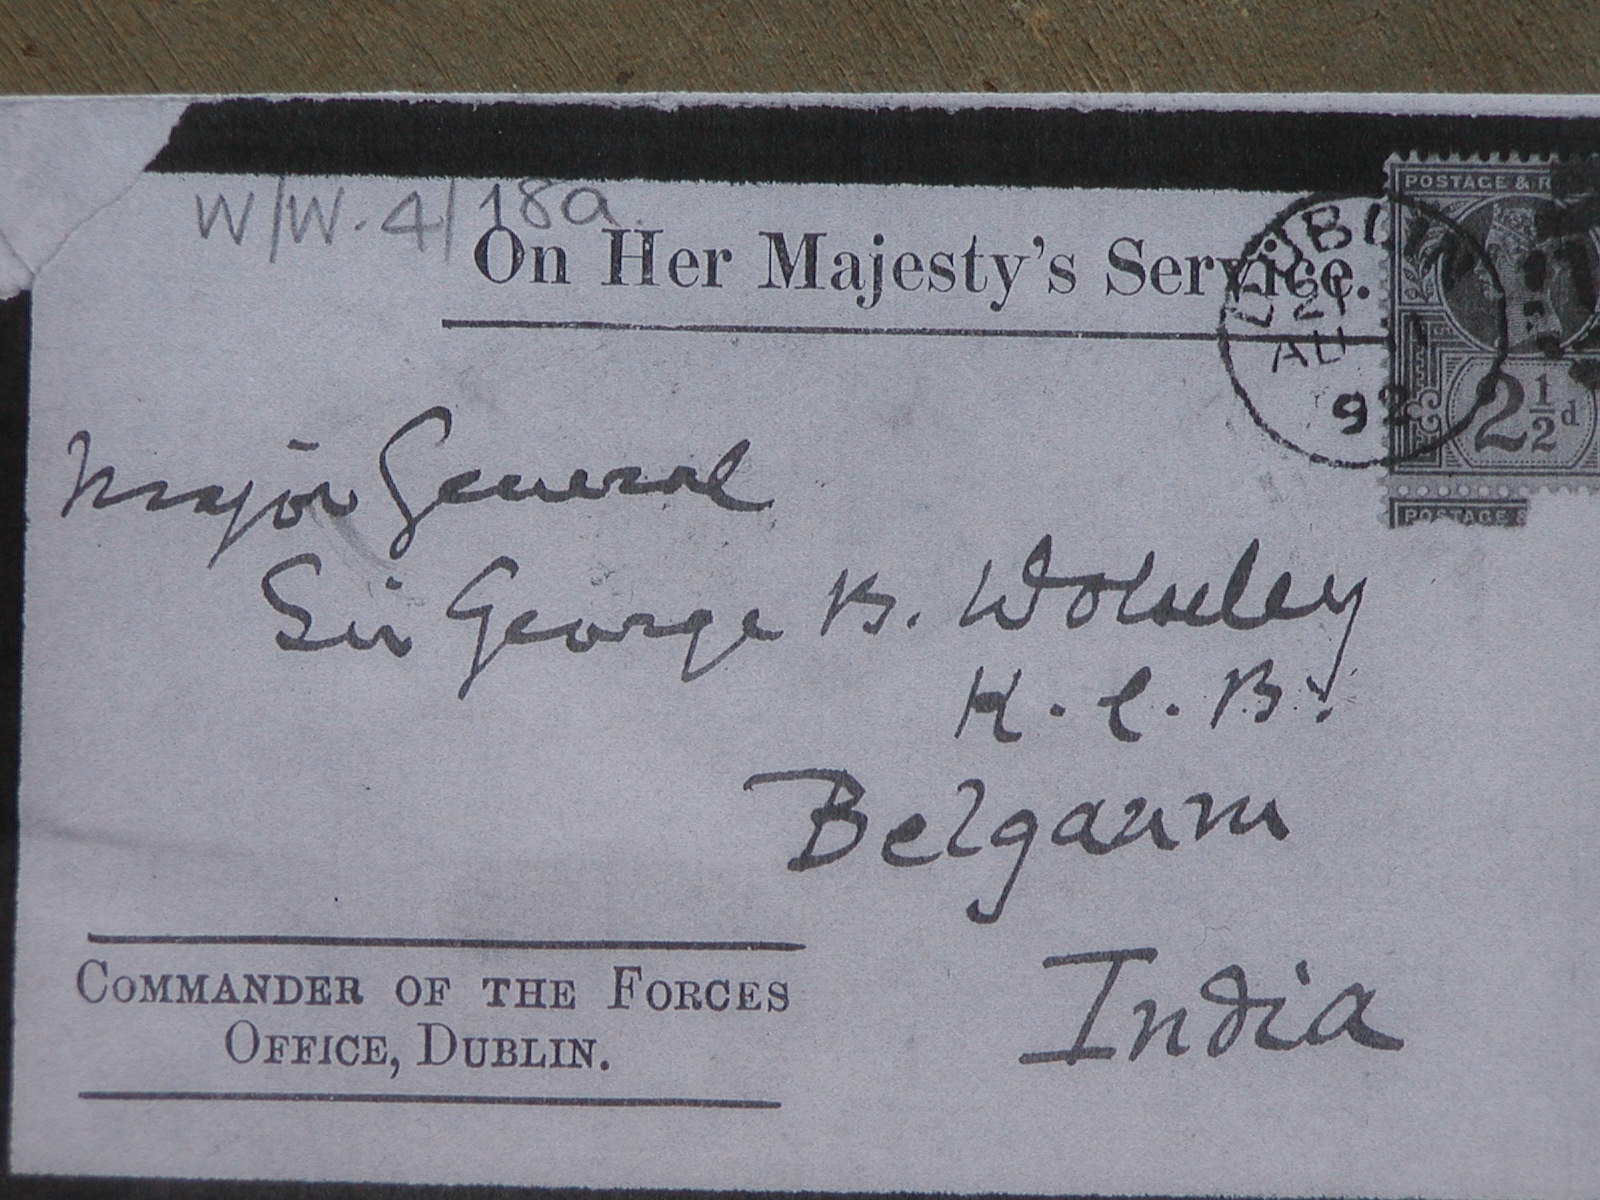 W/W. 4/18a.
On Her Majesty's Service.
POSTAGE & R
DUBLIN
21
AU
92
2½d
POSTAGE &
Major General
Sir George B. Wolseley
K.C.B.
Belgaum
India
COMMANDER OF THE FORCES
OFFICE, DUBLIN.